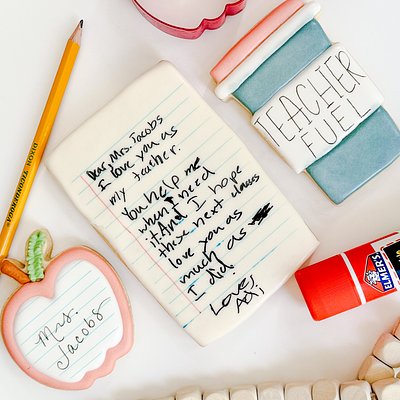 Dear, Mrs. Jacobs
I love you as
my teacher.
You help me
when I need
it. And I hope
this next class
love you as
much as
I did
Love,
Adi
TEACHER
FUEL
DIXON
TICONDEROGA
Mrs.
Jacobs
ELMER'S